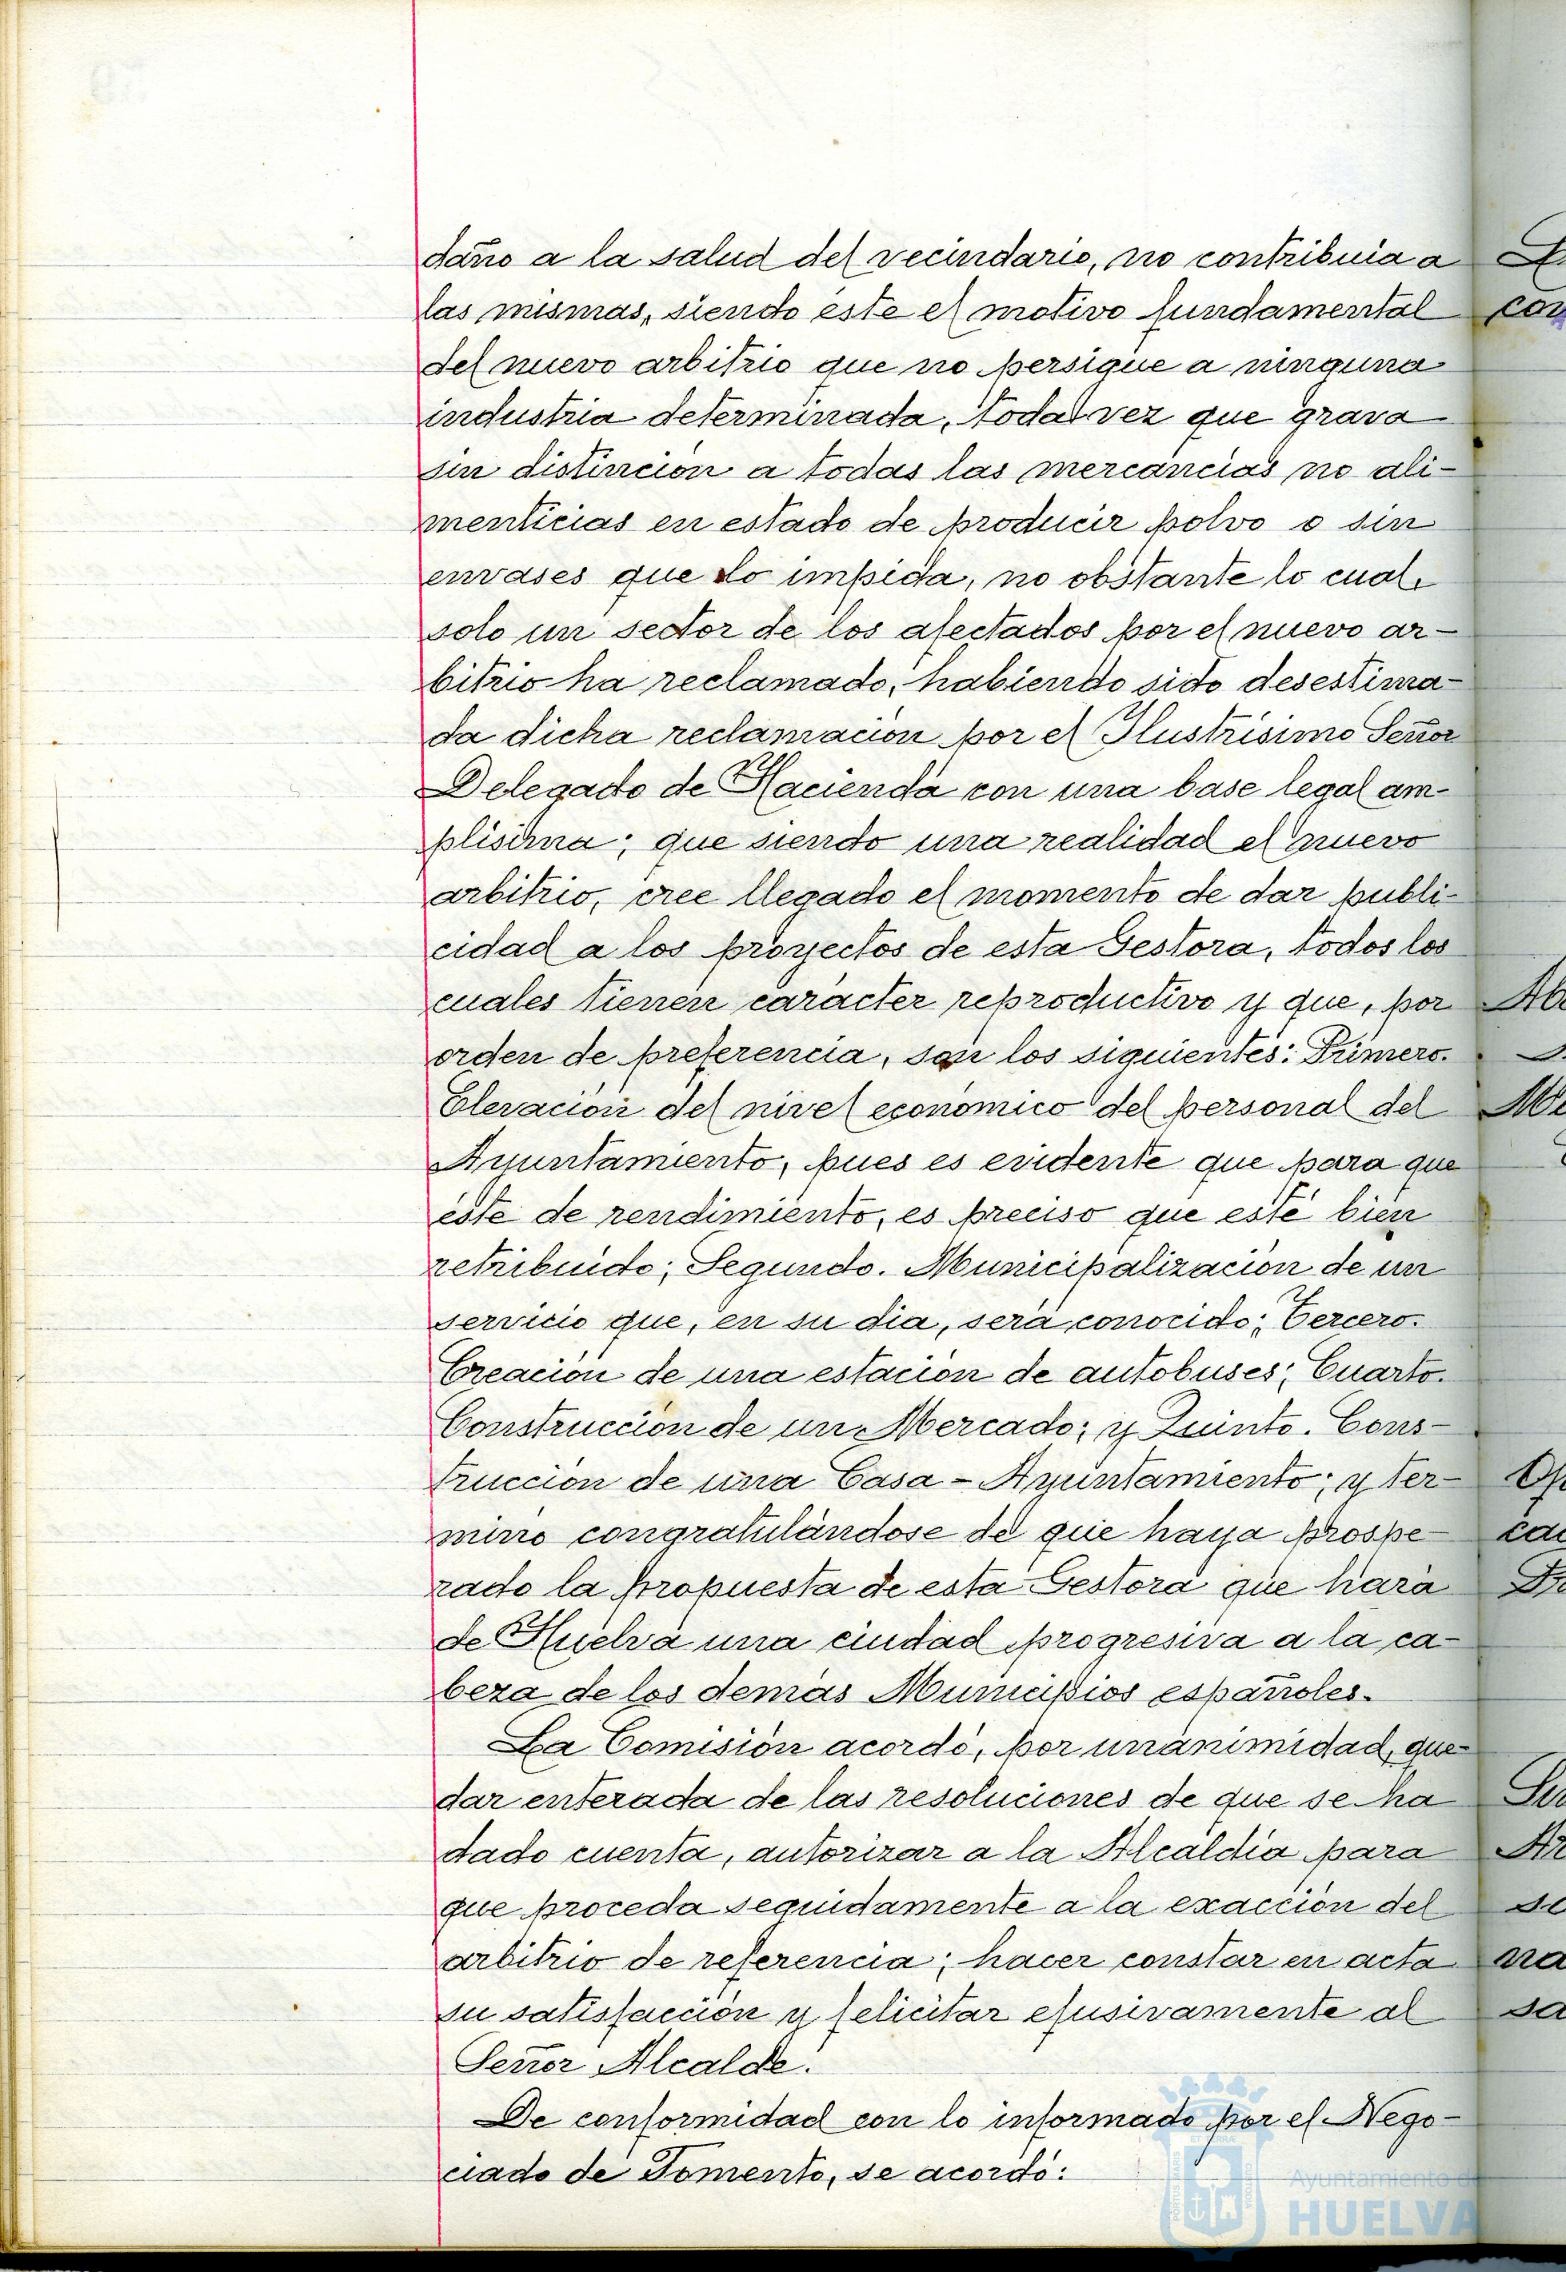 daño a la salud del vecindario, no contribuia a
las mismas, siendo éste el motivo fundamental
del nuevo arbitrio que no persigue a ninguna
industria determinada, toda vez que grava
sin distinción a todas las mercancias no ali-
menticias en estado de producir polvo o sin
envases que lo impida, no obstante lo cual,
solo un sector de los afectados por el nuevo ar-
bitrio ha reclamado, habiendo sido desestima-
da dicha reclamación por el Ilustrísimo Señor
Delegado de Hacienda con una base legal am-
plisima; que siendo una realidad el nuevo
arbitrio, cree llegado el momento de dar publi-
cidad a los proyectos de esta Gestora, todos los
cuales tienen carácter reproductivo y que, por
orden de preferencia, son los siguientes: Primero.
Elevación del nivel económico del personal del
Ayuntamiento, pues es evidente que para que
éste de rendimiento, es preciso que esté bien
retribuído; Segundo. Municipalización de un
servicio que, en su dia, será conocido; Tercero.
Creación de una estación de autobuses; Cuarto.
Construcción de un Mercado; y Quinto. Cons-
trucción de una Casa-Ayuntamiento; y ter-
mino congratulándose de que haya prospe-
rado la propuesta de esta Gestora que hará
de Huelva una ciudad progresiva a la ca-
beza de los demás Municipios españoles.
La Comisión acordó, por unanimidad, que-
dar enterada de las resoluciones de que se ha
dado cuenta, autorizar a la Alcaldía para
que proceda seguidamente a la exacción del
arbitrio de referencia; hacer constar en acta
su satisfacción y felicitar efusivamente al
Señor Alcalde.
De conformidad con lo informado por el Nego-
ciado de Fomento, se acordó:
Ayuntamiento de
HUELVA